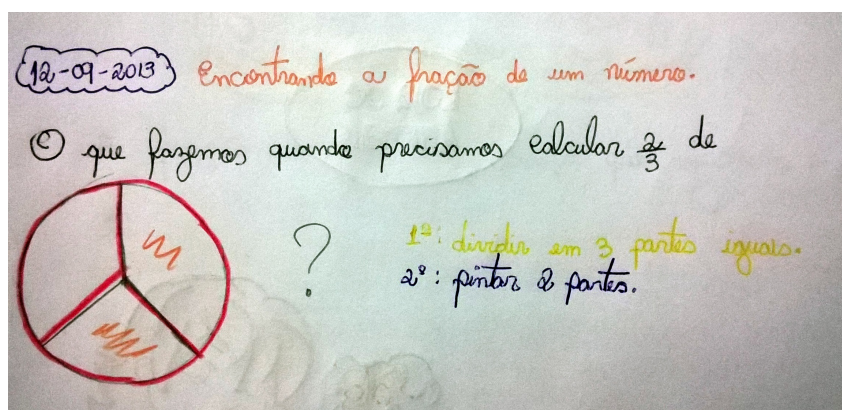 12-09-2013 Encontrando a fração de um número.
O que fazemos quando precisamos calcular 2/3 de
?
1º: dividir em 3 partes iguais.
2º: pintar 2 partes.